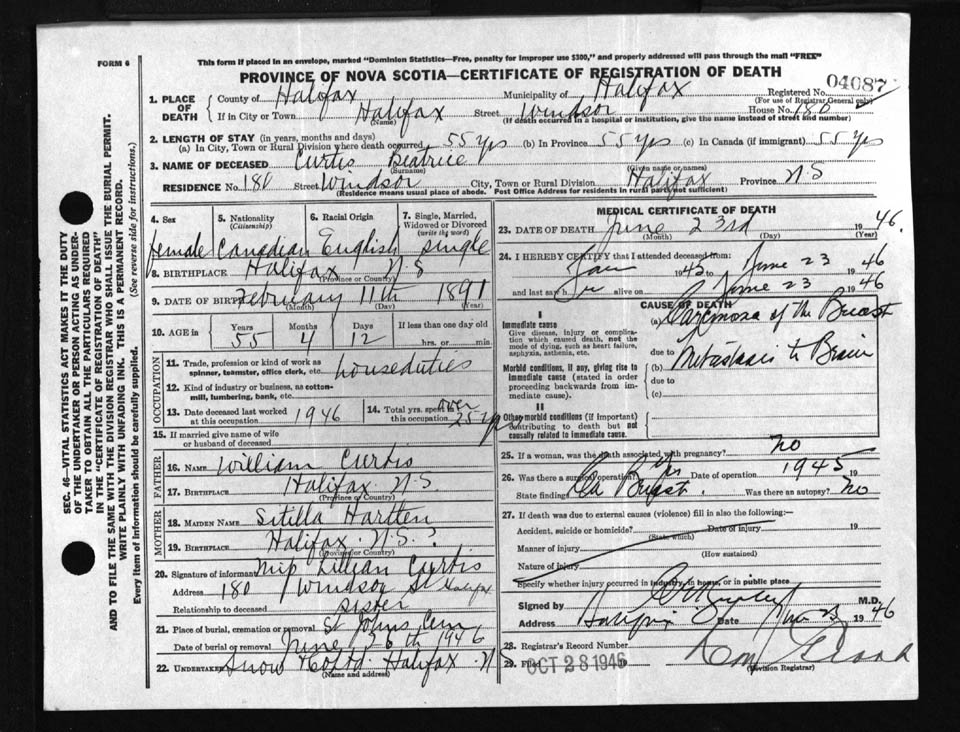 FORM 6
This form if placed in an envelope, marked "Dominion Statistics—Free, penalty for improper use $300," and properly addressed will pass through the mail "FREE"
PROVINCE OF NOVA SCOTIA—CERTIFICATE OF REGISTRATION OF DEATH
04087
1. PLACE OF DEATH
County of Halifax Municipality of Halifax Registered No.
(For use of Registrar General only)
If in City or Town Halifax Street Windsor House No. 180
(Name) (If death occurred in a hospital or institution, give the name instead of street and number)
2. LENGTH OF STAY (in years, months and days)
(a) In City, Town or Rural Division where death occurred 55 yrs (b) In Province 55 yrs (c) In Canada (if immigrant) 55 yrs
3. NAME OF DECEASED Curtis Beatrice
(Surname) (Given name or names)
RESIDENCE No. 180 Street Windsor City, Town or Rural Division Halifax Province N.S
(Residence means usual place of abode. Post Office Address for residents in rural parts not sufficient)
4. Sex female
5. Nationality (Citizenship) Canadian
6. Racial Origin English
7. Single, Married, Widowed or Divorced (write the word) single
8. BIRTHPLACE Halifax N.S
(Province or Country)
9. DATE OF BIRTH February 11th 1891
(Month) (Day) (Year)
10. AGE in Years 55 Months 4 Days 12 If less than one day old hrs. or min.
OCCUPATION
11. Trade, profession or kind of work as spinner, teamster, office clerk, etc. houseduties
12. Kind of industry or business, as cotton-mill, lumbering, bank, etc.
13. Date deceased last worked at this occupation 1946
14. Total yrs. spent in this occupation over 25 yrs
15. If married give name of wife or husband of deceased
FATHER
16. NAME William Curtis
17. BIRTHPLACE Halifax N.S.
(Province or Country)
MOTHER
18. MAIDEN NAME Sitilla Hartten
19. BIRTHPLACE Halifax N.S. ?
(Province or Country)
20. Signature of informant Miss Lillian Curtis
Address 180 Windsor St Halifax
Relationship to deceased sister
21. Place of burial, cremation or removal St Johns Cem
Date of burial or removal June 26th 1946
22. UNDERTAKER Snow & Co Ltd. Halifax N.S
(Name and address)
MEDICAL CERTIFICATE OF DEATH
23. DATE OF DEATH June 23rd 1946.
(Month) (Day) (Year)
24. I HEREBY CERTIFY that I attended deceased from:
Jan 1945 to June 23 1946
and last saw h er alive on June 23 1946
CAUSE OF DEATH
I
Immediate cause
Give disease, injury or complication which caused death, not the mode of dying, such as heart failure, asphyxia, asthenia, etc.
Morbid conditions, if any, giving rise to immediate cause (stated in order proceeding backwards from immediate cause).
II
Other morbid conditions (if important) contributing to death but not causally related to immediate cause.
(a) Carcinoma of the Breast
due to
(b) Metastasis to Brain
due to
(c)
25. If a woman, was the death associated with pregnancy? no
26. Was there a surgical operation? Yes Date of operation 1945 19
State findings Ca Breast. Was there an autopsy? no
27. If death was due to external causes (violence) fill in also the following:—
Accident, suicide or homicide? Date of injury 19
(State which)
Manner of injury
(How sustained)
Nature of injury
Specify whether injury occurred in industry, in home, or in public place
Signed by M.D.
Address Halifax Date June 23 1946
28. Registrar's Record Number
29. Filed OCT 28 1946
(Division Registrar)
SEC. 46—VITAL STATISTICS ACT MAKES IT THE DUTY OF THE UNDERTAKER OR PERSON ACTING AS UNDERTAKER TO OBTAIN ALL THE PARTICULARS REQUIRED IN THE "CERTIFICATE OF REGISTRATION OF DEATH"
AND TO FILE THE SAME WITH THE DIVISION REGISTRAR WHO SHALL ISSUE THE BURIAL PERMIT.
WRITE PLAINLY WITH UNFADING INK. THIS IS A PERMANENT RECORD.
Every item of information should be carefully supplied. (See reverse side for instructions.)